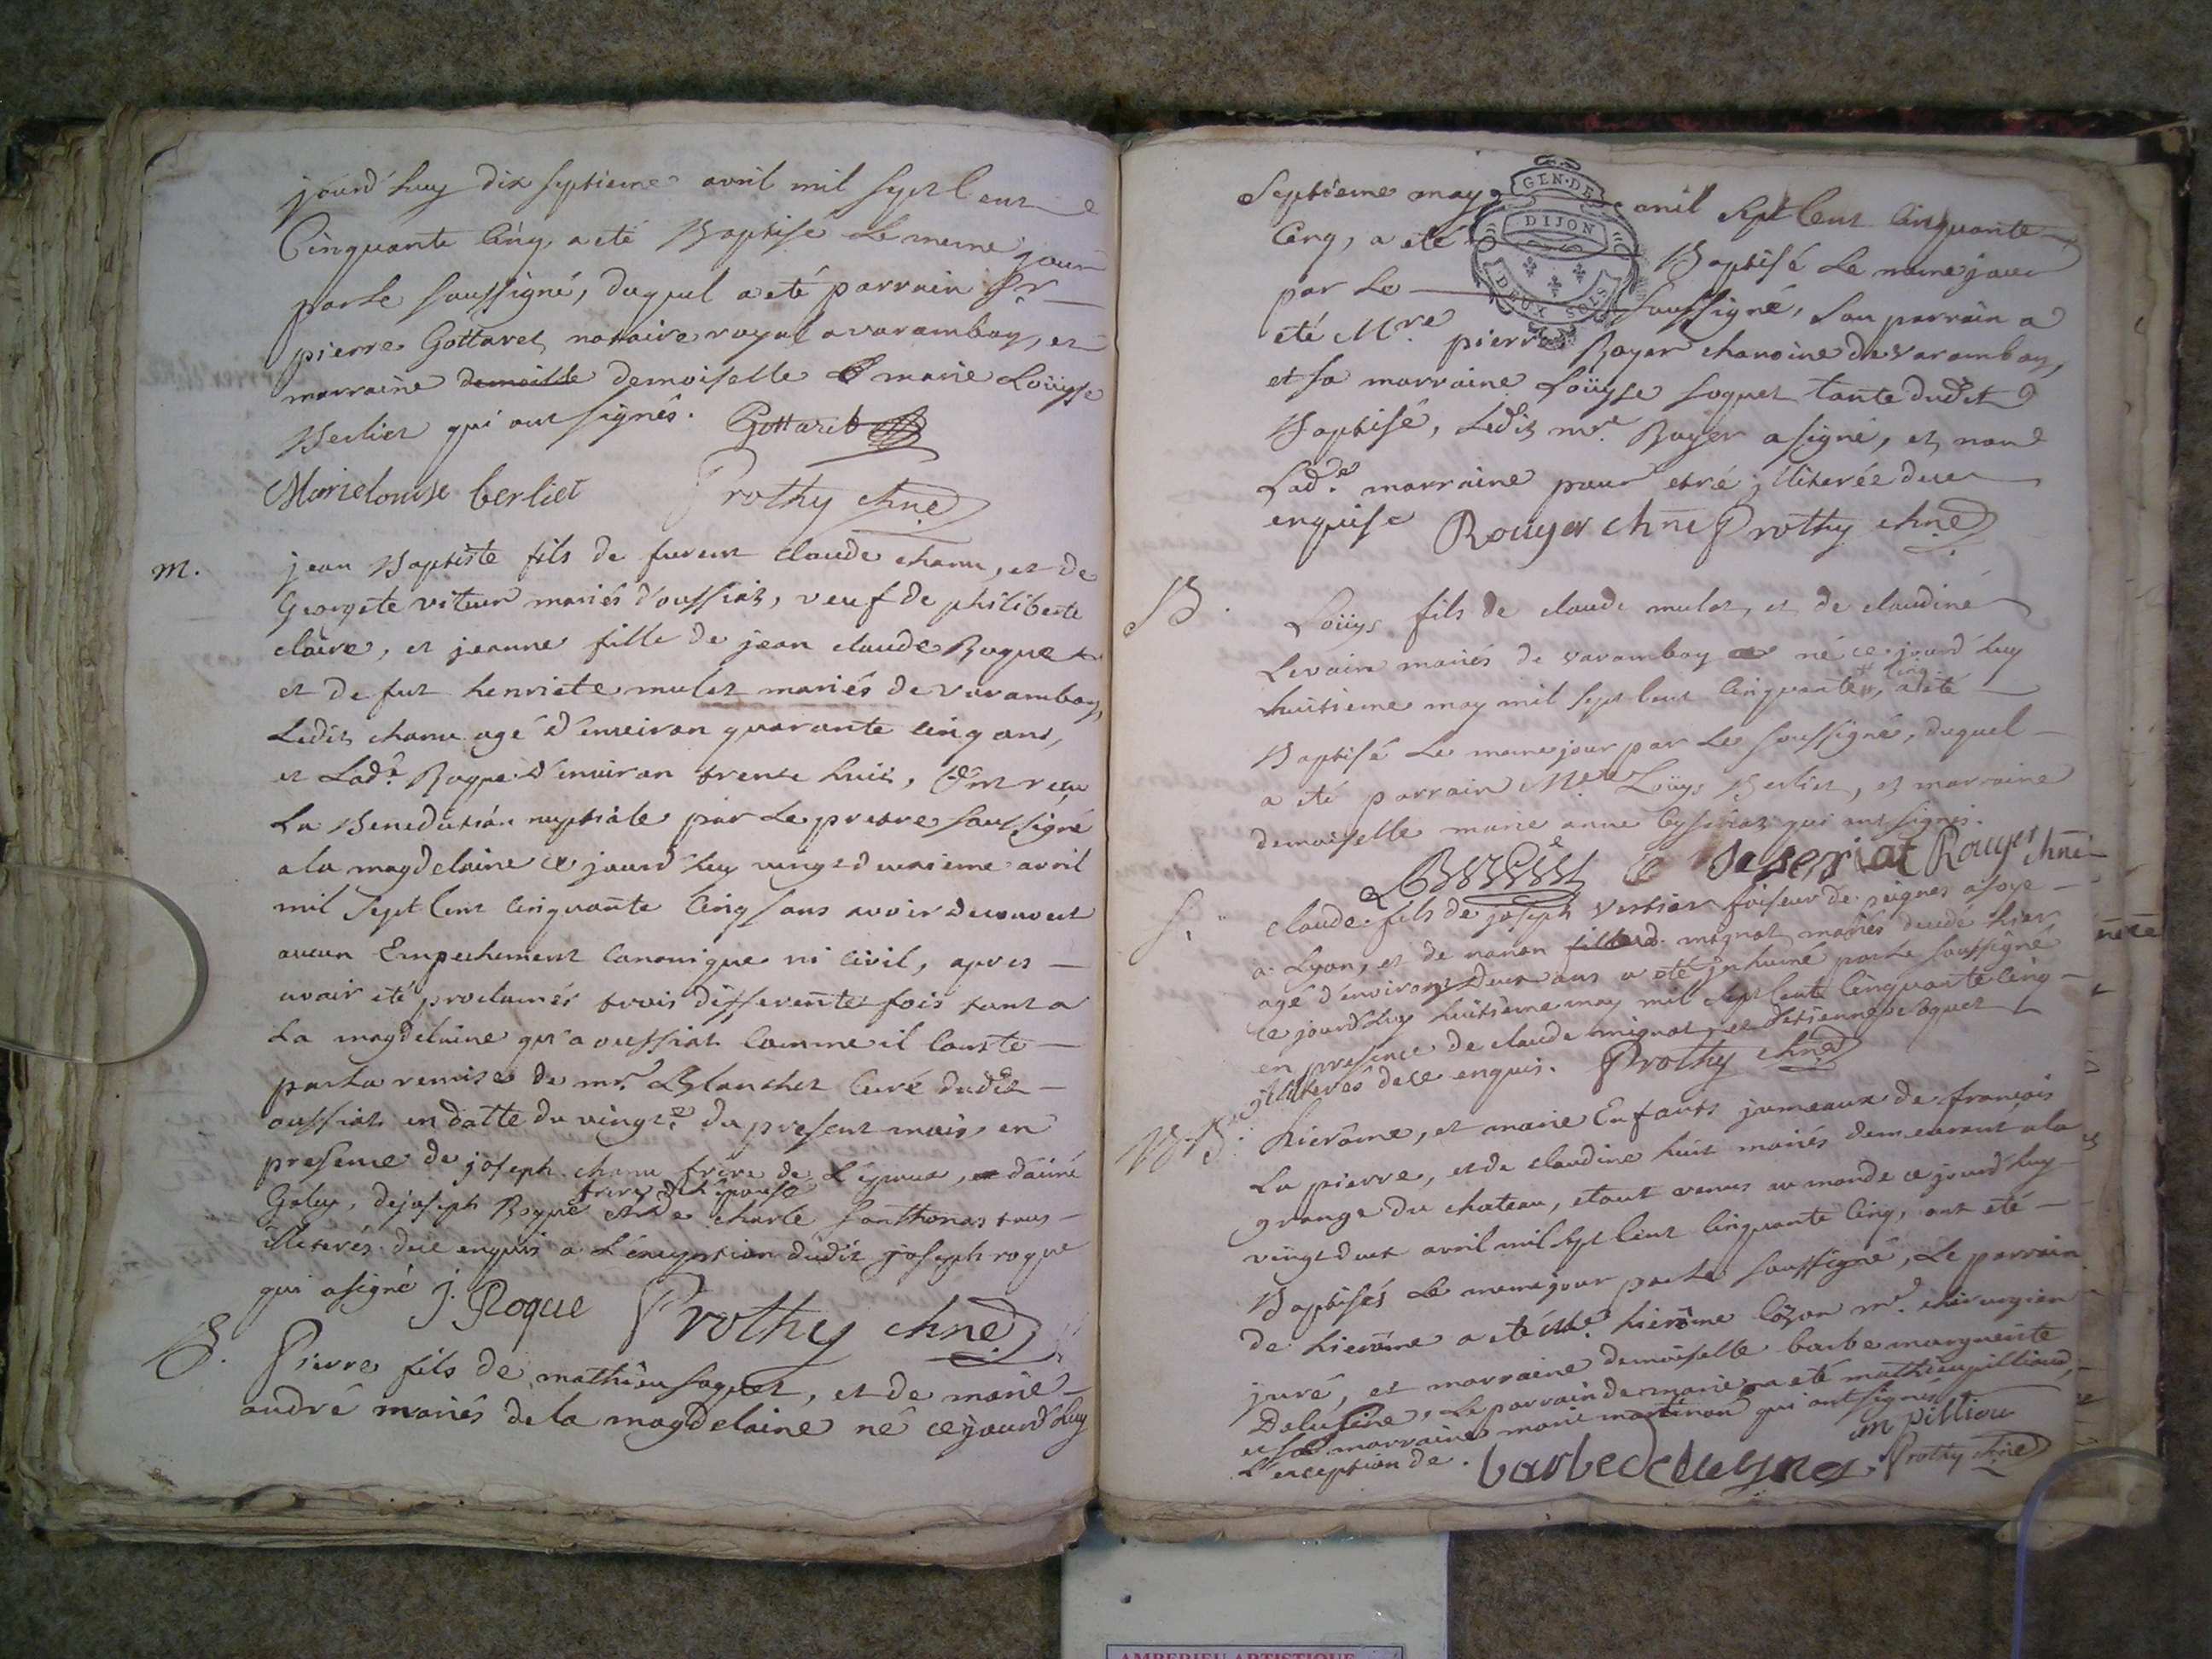 jourd'huy dix septieme avril mil sept Cent
Cinquante Cinq, a eté Baptisé le meme jour
par le soussigné, duquel a eté parrain Sr
pierre Gottaret notaire royal a varambon, et
marraine demoiselle marie Loüyse
Berliet qui ont signés. Gottaret
Marie louise berliet Prothy chne
m. jean Baptiste fils de furent claude chanu, et de
Georgete mariés d'oussiat, veuf de philiberte
claire, et jeanne fille de jean claude Roque
et de fut henriete mulet mariés de varambon,
Ledit chanu agé d'enveiron quarante cinq ans,
et Lade Roque d'environ trente huit, Ont reçu
La Benediction nuptiale par Le pretre soussigné
a la magdelaine ce jourd'huy vingt deuxieme avril
mil Sept Cent Cinquante Cinq sans avoir decouvert
aucun Empechement Canonique ni Civil, apres
avoir eté proclamés trois differentes fois tant a
La magdelaine qu'a oussiat Comme il Conste
par la remise de mre Blanchet Curé dudit
oussiat en datte du vingt du present mois, en
presence de joseph chanu frère de L'epoux, d'aimé
Goley, de joseph Roque frere de L'epouse et de charle Santhonas tous
illiterés de ce enquis a L'exception dudit joseph roque
qui a signé j. Roque Prothy chne
B. Pierre fils de mathieu soquet, et de marie
andré mariés de la magdelaine né ce jourd'huy
Septieme may mil Sept Cent Cinquante
Cinq, a eté Baptisé Le meme jour
par Le soussigné, son parrain a
eté Mre pierre Royer chanoine de varambon,
et sa marraine Loüyse soquet tante dudit
Baptisé, Ledit mre Royer a signé, et non
Lade marraine pour etre illiterée de ce
enquise Roüyer chne Prothy chne
GEN. DE
DIJON
DEUX SOLS
B. Loüys fils de claude mulet, et de claudine
Levrain mariés de varambon né ce jourd'huy
huitieme may mil Sept Cent Cinquante cinq, a eté
Baptisé Le meme jour par Le soussigné, duquel
a eté parrain Mre Loüys Berliet, et marraine
demoiselle marie anne qui ont signés.
Berliet Rouyer chne
S. claude fils de joseph vertier faiseur de peignes a soye
a Lyon, et de nanon mignot mariés decedé hier
agé d'environ deux ans a eté inhumé par le soussigné
ce jourd'huy huitieme may mil Sept Cent Cinquante Cinq
en presence de claude mignot, et d'etienne
illiterés de ce enquis. Prothy chne
B. B. hierôme, et marie Enfants jumeaux de françois
La pierre, et de claudine huit mariés demeurant a la
grange du chateau, etant venus au monde ce jourd'huy
vingt deux avril mil Sept Cent Cinquante Cinq, ont eté
Baptisés Le meme jour par Le soussigné, Le parrain
de hierôme a eté Mre hierôme Cozon me chirurgien
juré, et marraine demoiselle barbe marguerite
Delusine, Le parrain de marie a eté mathieu pillioud,
et sa marraine marie martinand qui ont signés
L'exception de. m pilliou
Prothy chne
AMBERIEU ARTISTIQUE